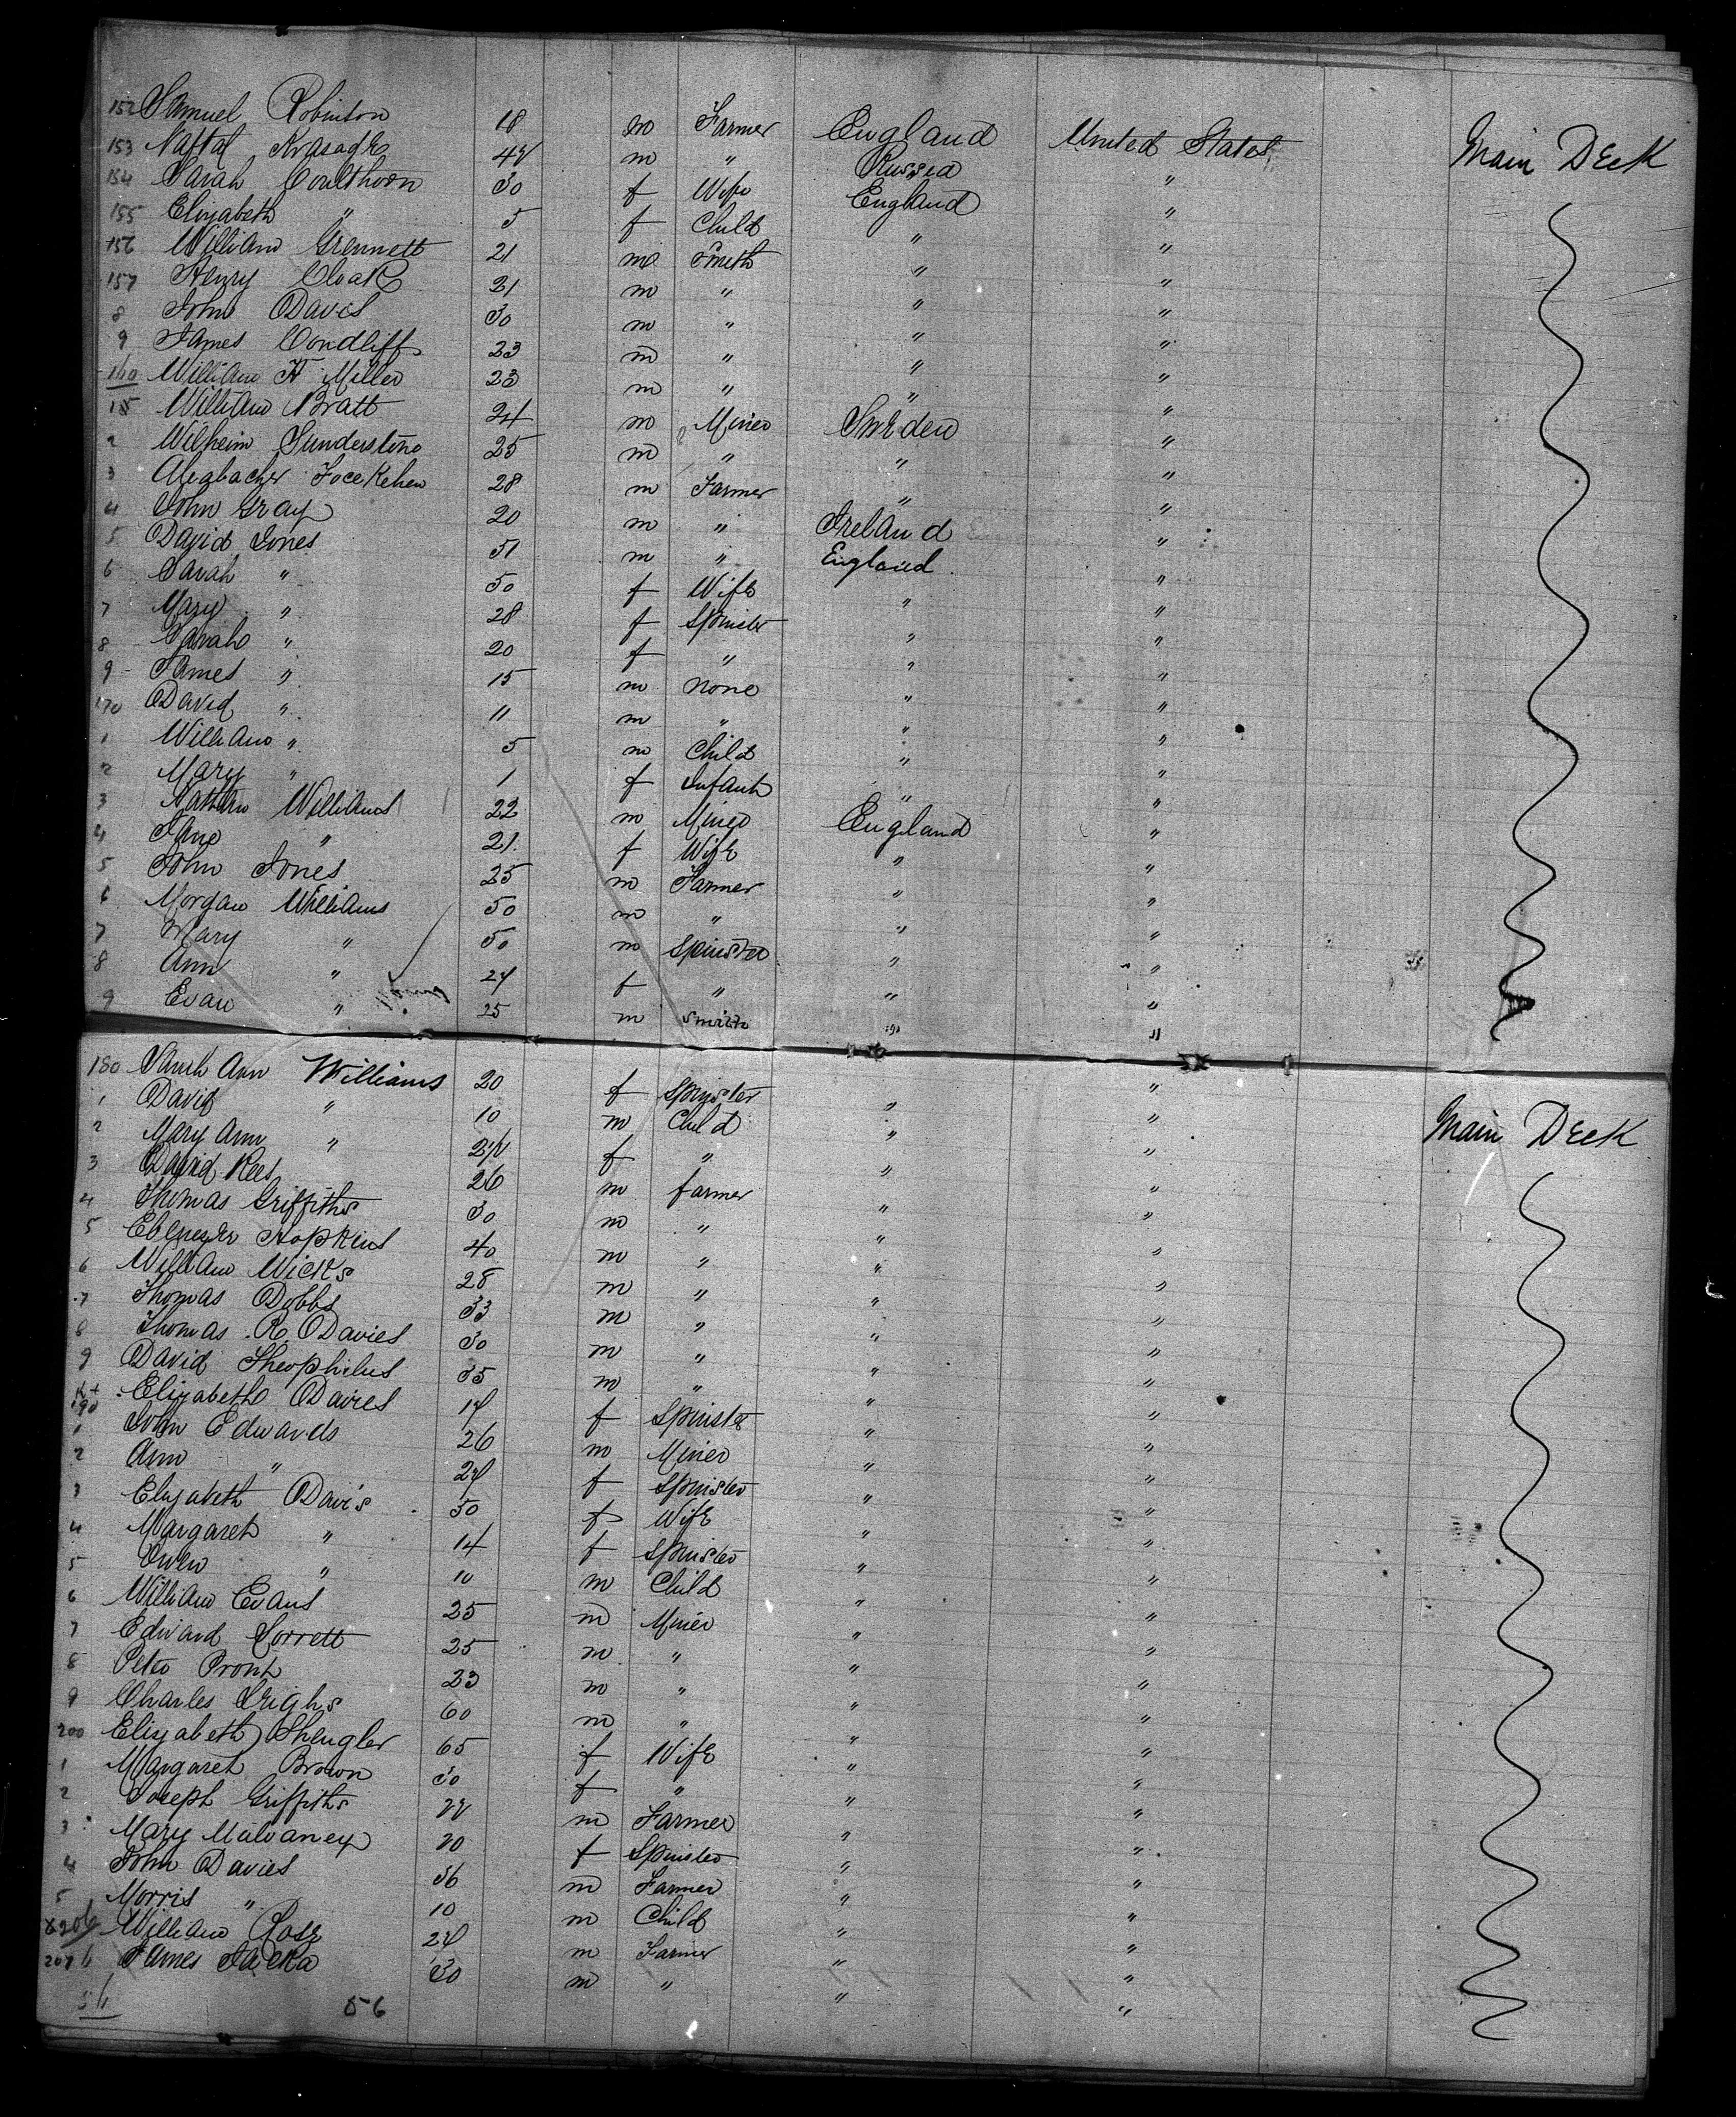 152 Samuel Robinson 18 m Farmer England United States Main Deck
153 Naftal Krasagk 42 m " Russia "
154 Sarah Coulthorn 30 f Wife England "
155 Elizabeth " 5 f Child " "
156 William Grennett 21 m Smith " "
157 Henry Cloak 21 m " " "
8 John Davis 30 m " " "
9 James Condliff 23 m " " "
160 William H Miller 23 m " " "
William Bratt 24 m Miner Sweden "
2 Wilheim Sunderstone 25 m " " "
3 28 m Farmer " "
4 John Gray 20 m " Ireland "
5 David Jones 51 m " England "
6 Sarah " 50 f Wife " "
7 Mary " 28 f Spinster " "
8 Sarah " 20 f " " "
9 James " 15 m none " "
170 David " 11 m " " "
1 William " 5 m Child " "
2 Mary " 1 f Infant " "
3 Nathan Williams 22 m Miner England "
4 Jane " 21 f Wife " "
5 John Jones 25 m Farmer " "
6 Morgan Williams 50 m " " "
7 Mary " 50 m Spinster " "
8 Ann " 24 f " " "
9 Evan " 25 m Smith " "
180 Sarah Ann Williams 20 f Spinster " "
1 David " 10 m Child " " Main Deck
2 Mary Ann " f " " "
3 David Rees 26 m farmer " "
4 Thomas Griffiths 30 m " " "
5 Ebenezer Hopkins 40 m " " "
6 William Wicks 28 m " " "
7 Thomas Dobbs 33 m " " "
8 Thomas R. Davies 30 m " " "
9 David Theophilus 35 m " " "
190 Elizabeth Davies 14 f Spinster " "
1 John Edwards 26 m Miner " "
2 Ann " 24 f Spinster " "
3 Elizabeth Davis 50 f Wife " "
4 Margaret " 14 f Spinster " "
5 Owen " 10 m Child " "
6 William Evans 25 m Miner " "
7 Edward Sorrett 25 m " " "
8 Peter Pront 23 m " " "
9 Charles Leighs 60 m " " "
200 Elizabeth Shengler 65 f Wife " "
1 Margaret Brown 30 f " " "
2 Joseph Griffiths 22 m Farmer " "
3 Mary Mulvaney 20 f Spinster " "
4 John Davies 36 m Farmer " "
5 Morris " 10 m Child " "
206 William Rose 24 m Farmer " "
207 James Jacka 30 m " " "
56 56